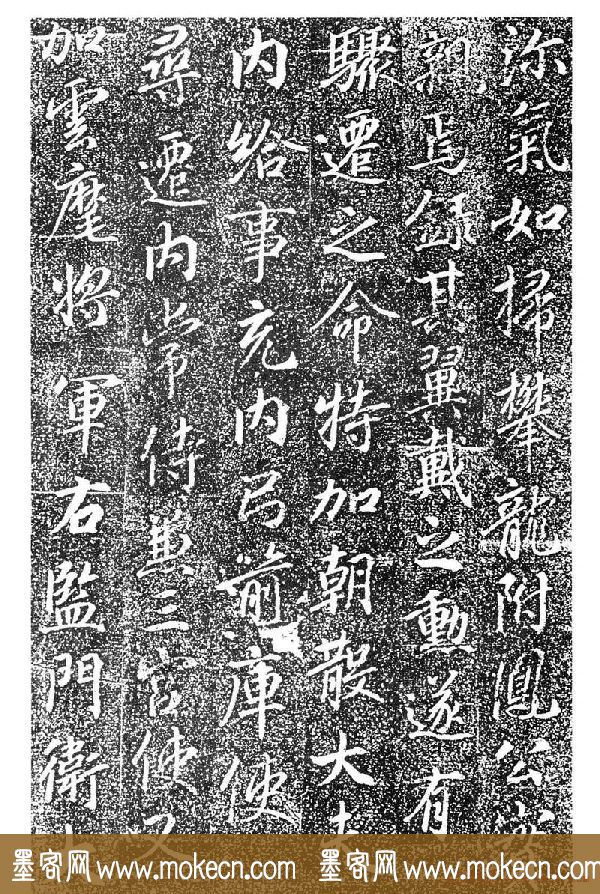 沴氣如掃攀龍附鳳公實
親焉録其翼戴之勳遂有
驟遷之命特加朝散大夫
内給事充内弓箭庫使
尋遷内常侍兼三宫使又
加雲麾將軍右監門衛
墨客网 www.mokecn.com 墨客网 www.mokecn.com